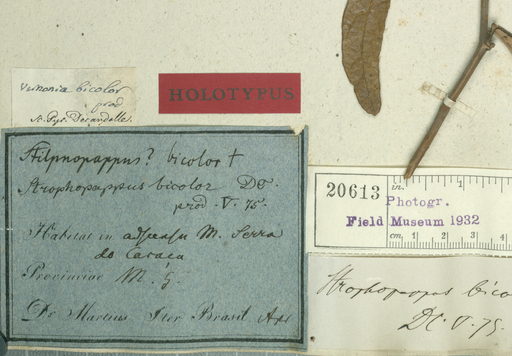 Vernonia bicolor
prod
HOLOTYPUS
Stilpnopappus? bicolor †
Strophopappus bicolor DC.
prod. V. 75.
Habitat in adscensu M. Serra
do Caraca
Provinciae M. G.
Dr Martius Iter Brasil
20613
in. 1
Photogr.
Field Museum 1932
cm. 1 2 3 4
Strophopappus bico
DC. V. 75.